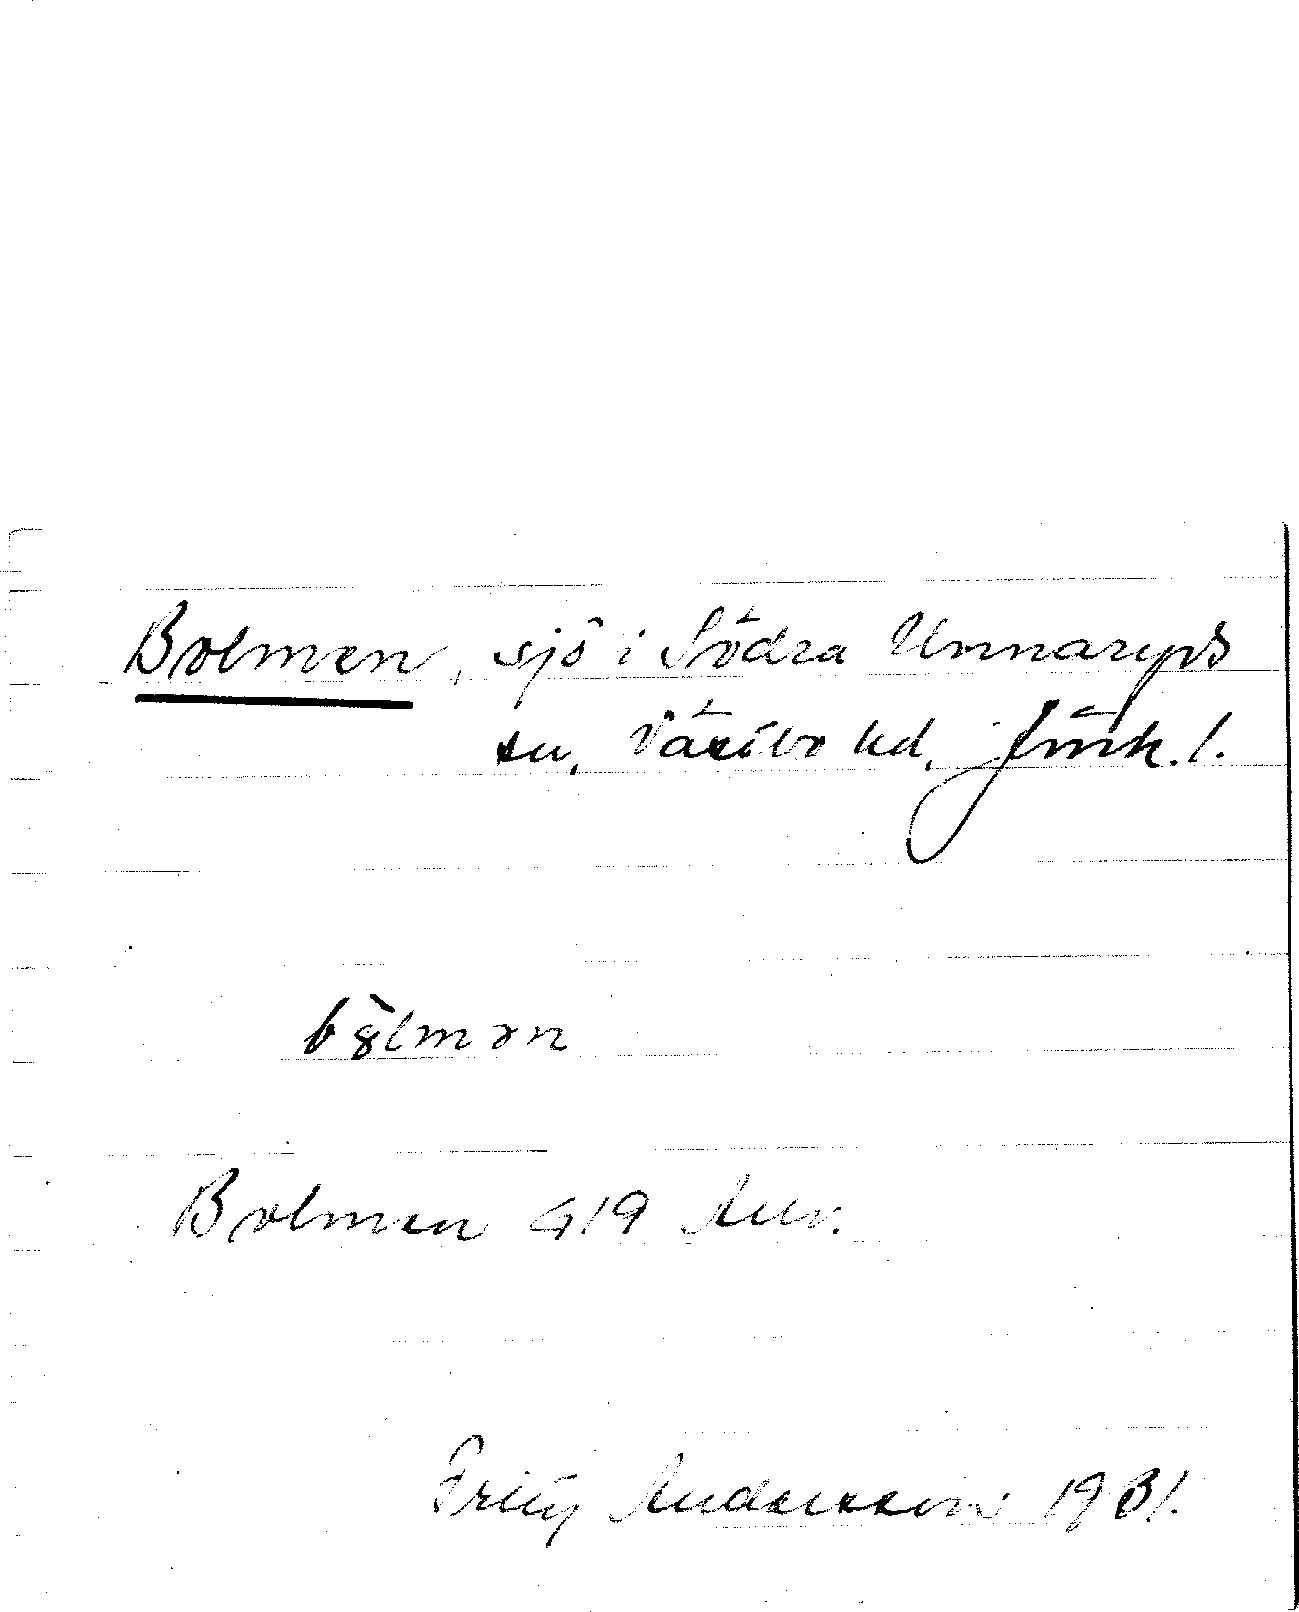 Bolmen, sjö i Södra Unnaryds
sn, Västbo hd, Jönk. l.
bòlmən
Bolmen 919
Andersson 1931.